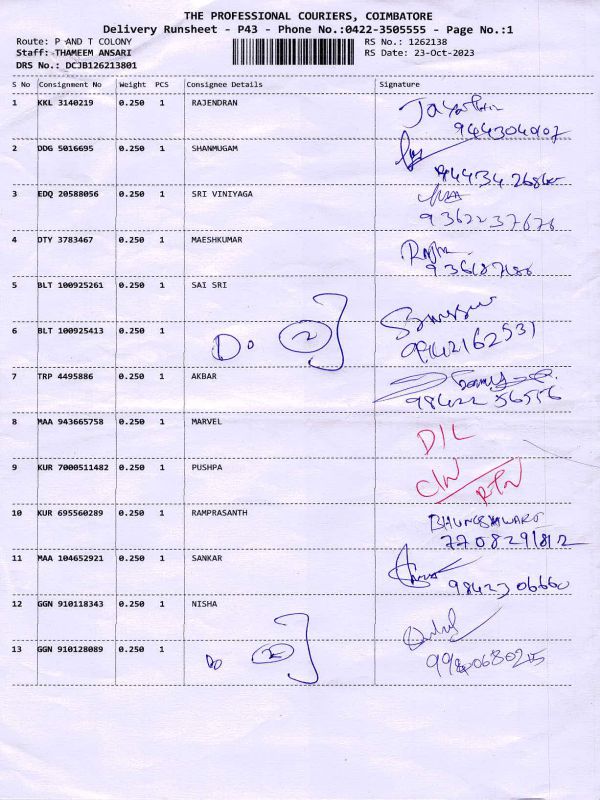 THE PROFESSIONAL COURIERS, COIMBATORE
Delivery Runsheet - P43 - Phone No.:0422-3505555 - Page No.:1
Route: P AND T COLONY RS No.: 1262138
Staff: THAMEEM ANSARI RS Date: 23-Oct-2023
DRS No.: DCJB126213801
S No Consignment No Weight PCS Consignee Details Signature
1 KKL 3140219 0.250 1 RAJENDRAN
2 DDG 5016695 0.250 1 SHANMUGAM
3 EDQ 20588056 0.250 1 SRI VINIYAGA
9362237676
4 DTY 3783467 0.250 1 MAESHKUMAR
5 BLT 100925261 0.250 1 SAI SRI
6 BLT 100925413 0.250 1 Do 2
9942162531
7 TRP 4495886 0.250 1 AKBAR
98422 56556
8 MAA 943665758 0.250 1 MARVEL D/L
9 KUR 7000511482 0.250 1 PUSHPA C/N
RTN
10 KUR 695560289 0.250 1 RAMPRASANTH
7708291812
11 MAA 104652921 0.250 1 SANKAR
9842306660
12 GGN 910118343 0.250 1 NISHA
13 GGN 910128089 0.250 1 Do